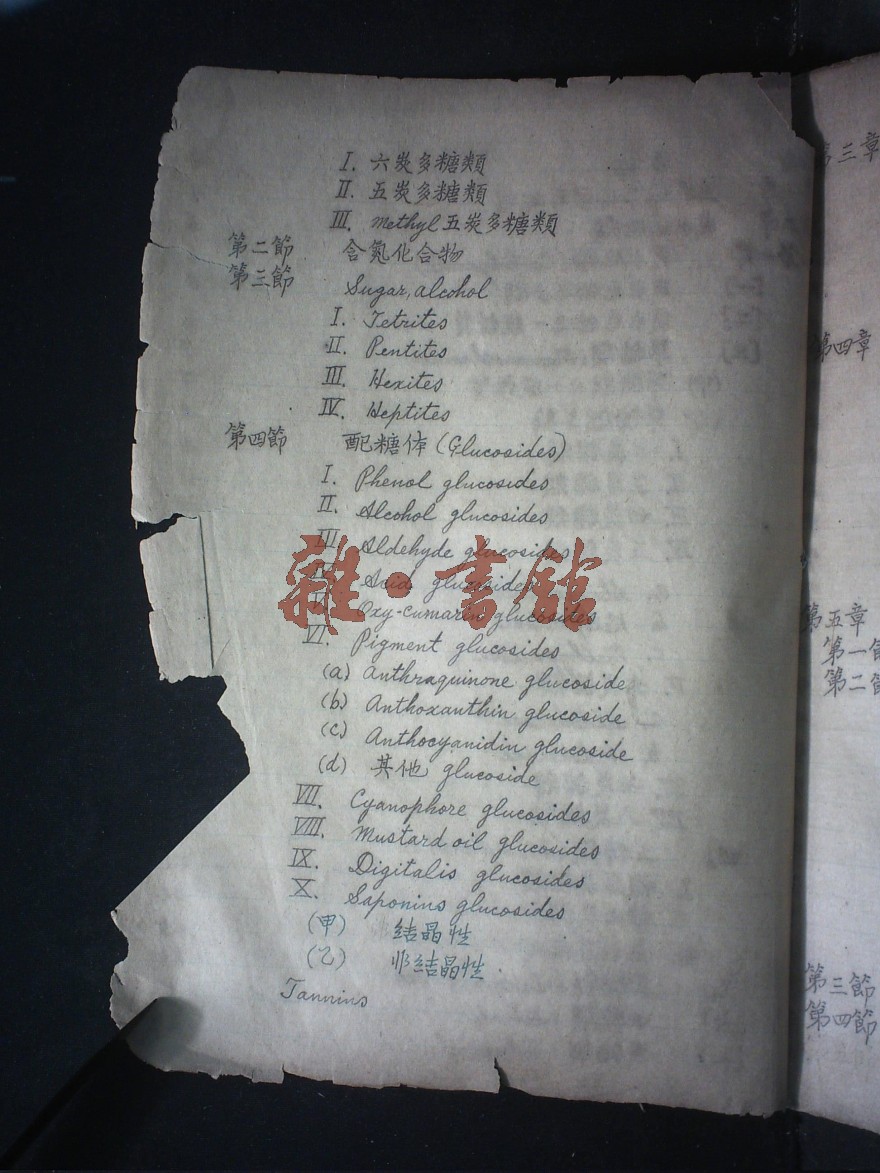 I. 六炭多糖類
II. 五炭多糖類
III. Methyl 五炭多糖類
第二節 含氮化合物
第三節 Sugar, alcohol
I. Tetrites
II. Pentites
III. Hexites
IV. Heptites
第四節 配糖体 (Glucosides)
I. Phenol glucosides
II. Alcohol glucosides
III. Aldehyde glucosides
IV. Acid glucosides
V. Oxy-cumarin glucosides
VI. Pigment glucosides
(a) Anthraquinone glucoside
(b) Anthoxanthin glucoside
(c) Anthocyanidin glucoside
(d) 其他 glucoside
VII. Cyanophore glucosides
VIII. Mustard oil glucosides
IX. Digitalis glucosides
X. Saponins glucosides
(甲) 结晶性
(乙) 非结晶性.
Tannins
雜·書館
第三章
第四章
第五章
第一節
第二節
第三節
第四節